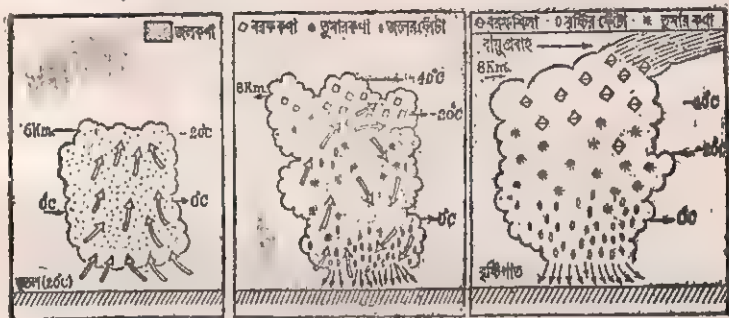 জলকণা
6Km.
-20°C
0°C
0°C
ভূতল (20°C)
০ বরফকণা * তুষারকণা ৹ জলের ফোঁটা
-40°C
8Km.
-20°C
0°C
বরফশিলা বৃষ্টির ফোঁটা * তুষার কণা
বায়ুপ্রবাহ
8Km.
0°C
বৃষ্টিপাত